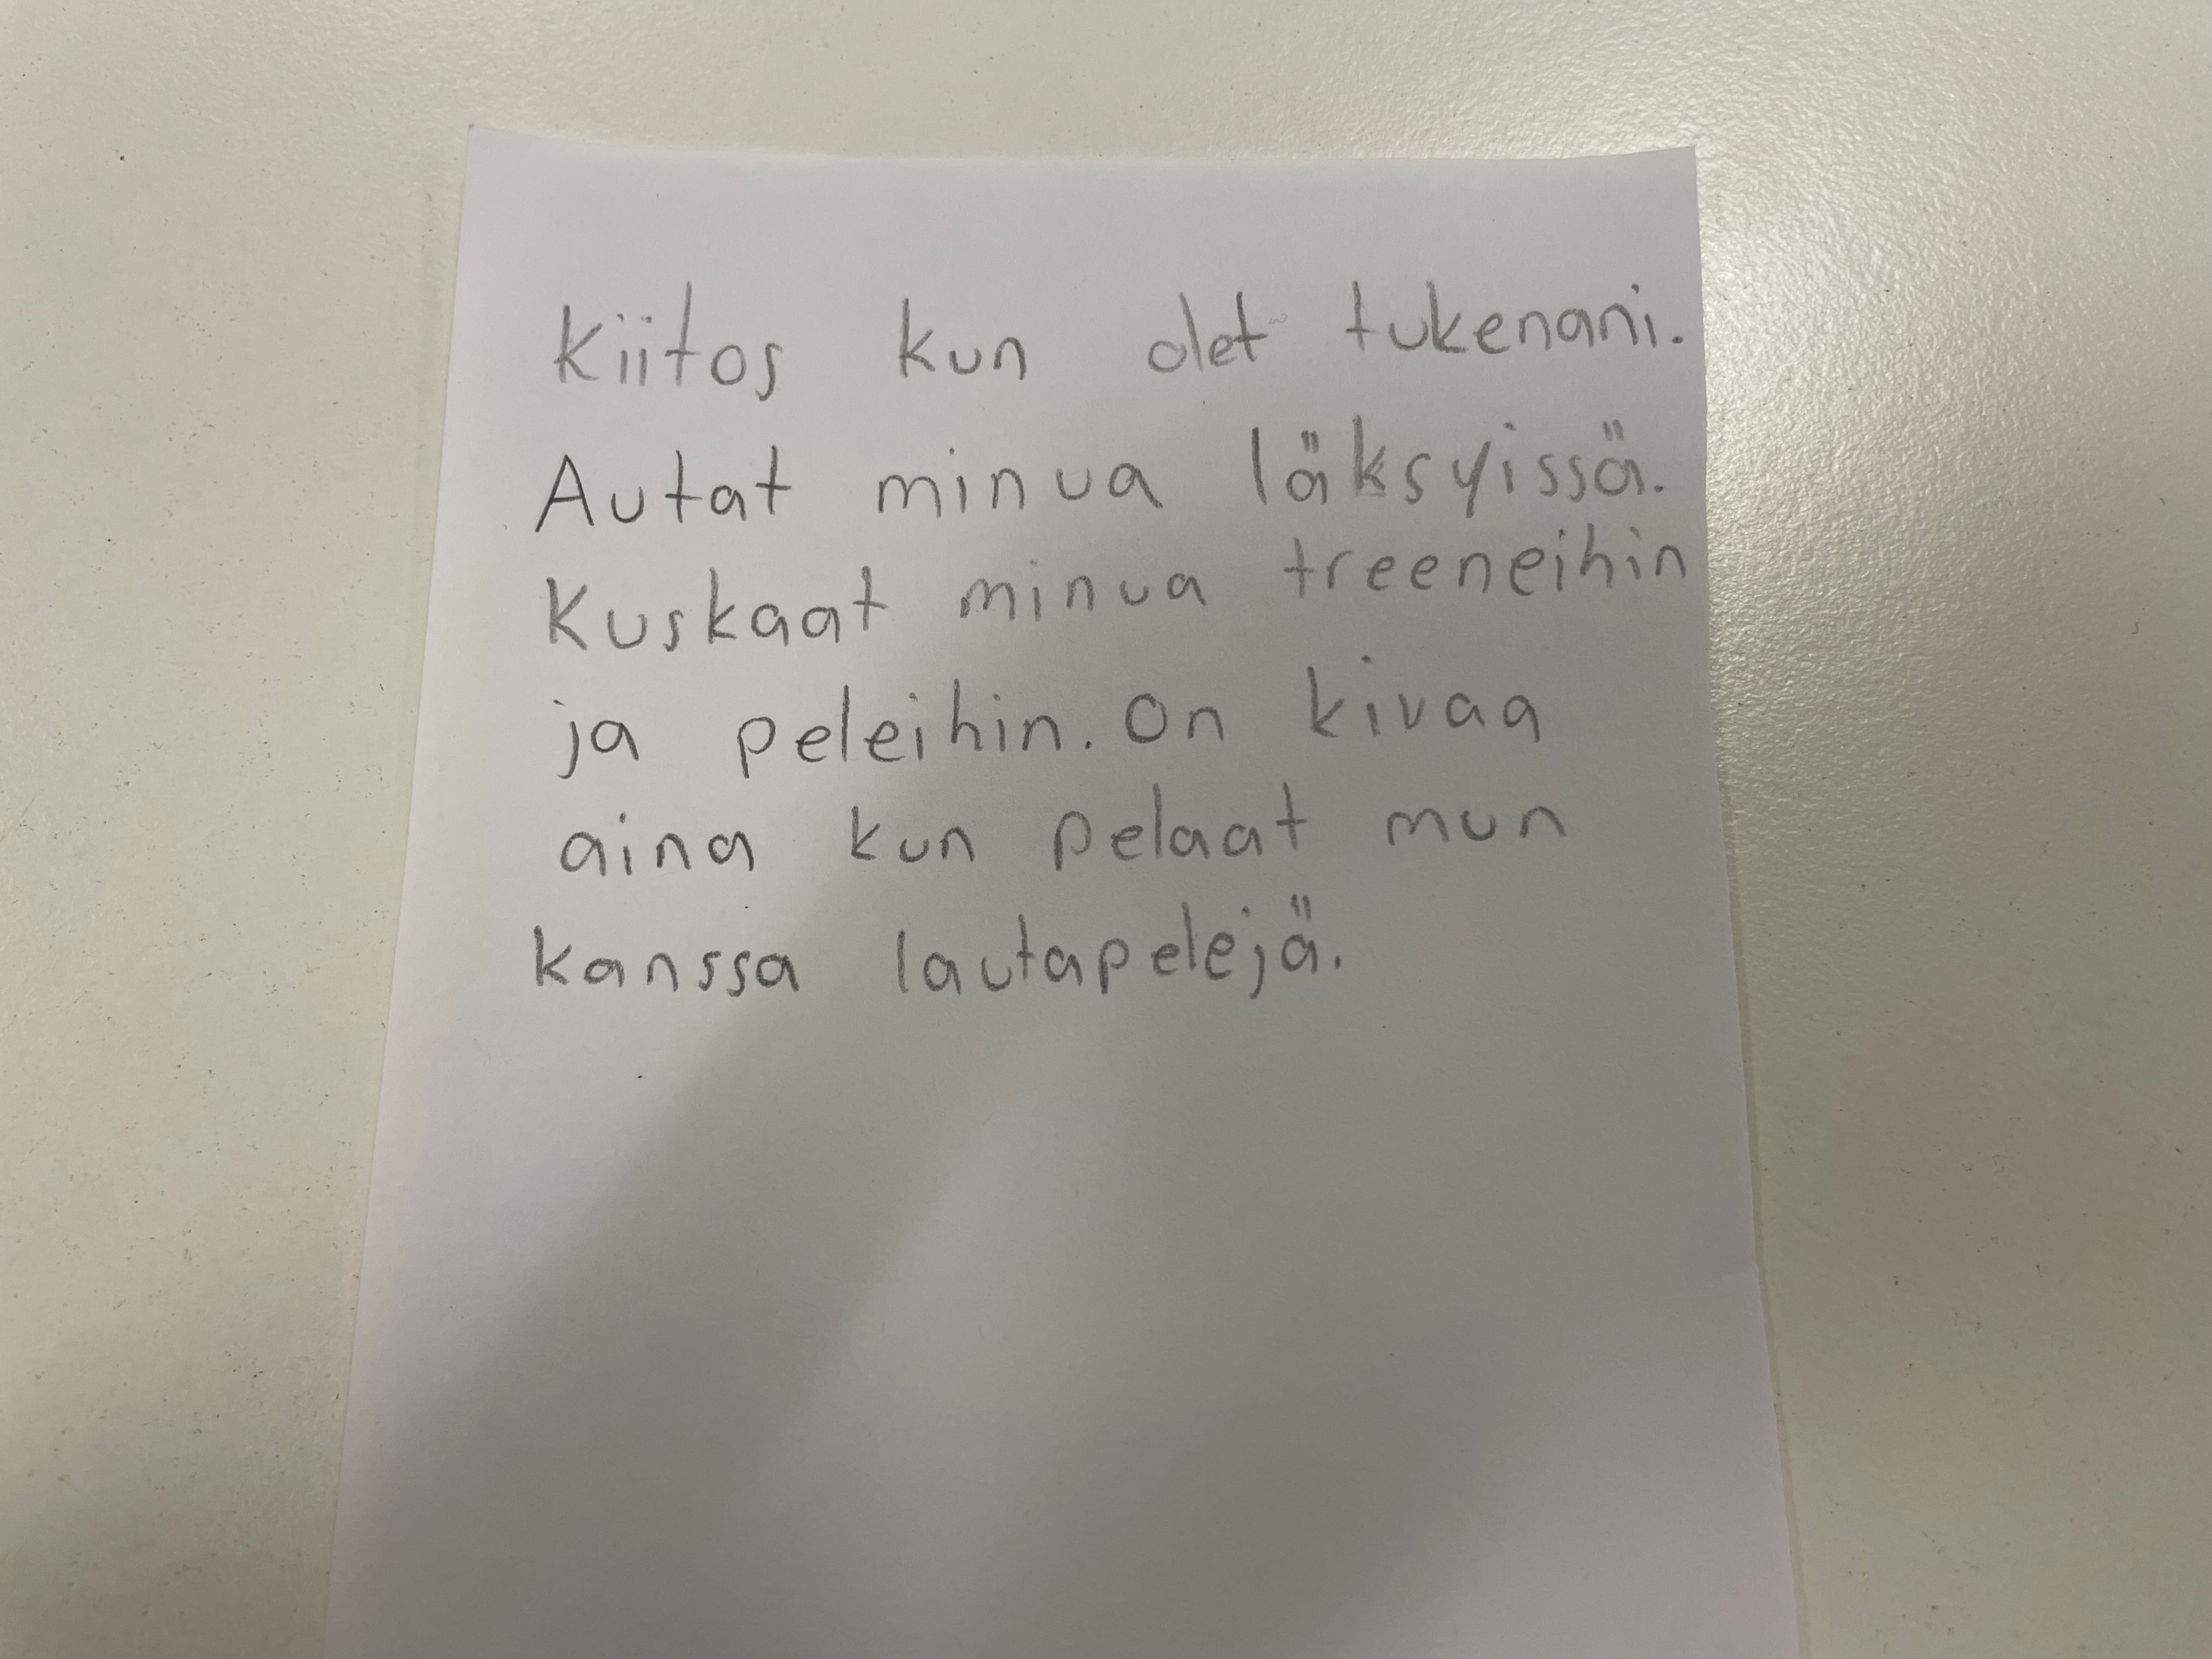 Kiitos kun olet tukenani.
Autat minua läksyissä.
Kuskaat minua treeneihin
ja peleihin. On kivaa
aina kun pelaat mun
kanssa lautapelejä.